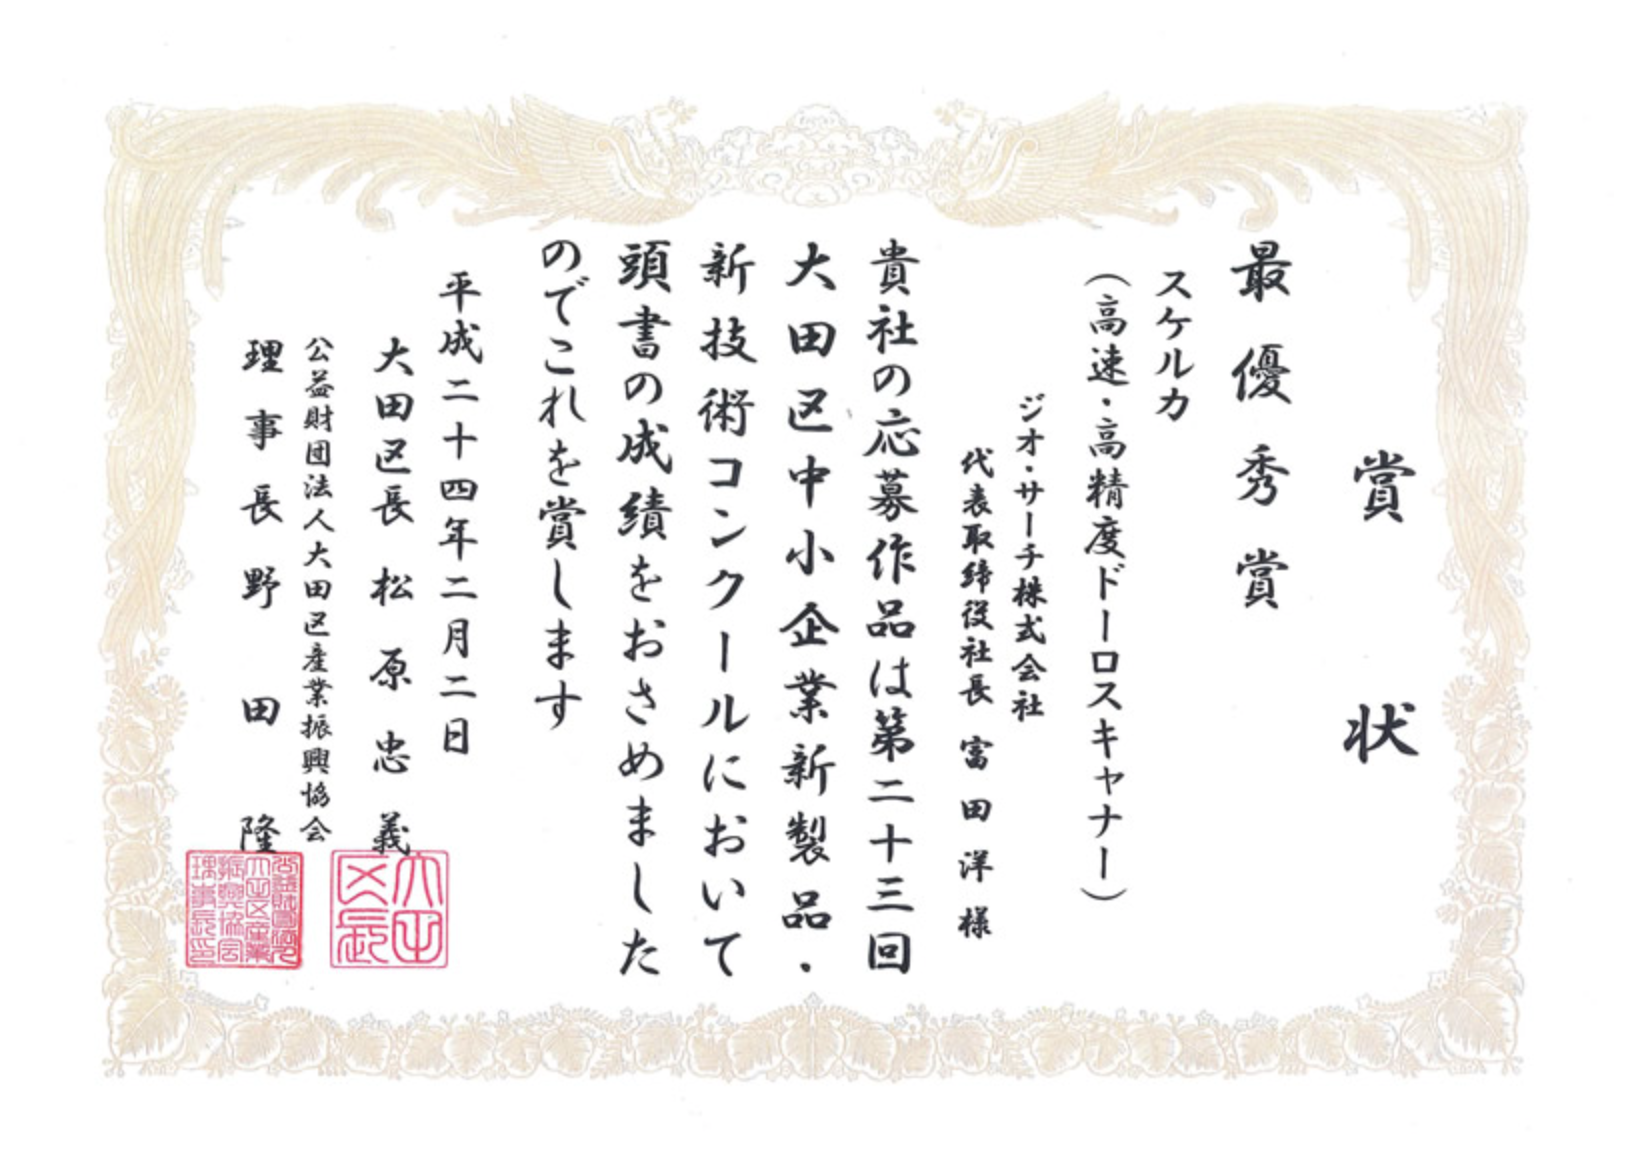 賞状
最優秀賞
スケルカ
（高速・高精度ドーロスキャナー）
ジオ・サーチ株式会社
代表取締役社長 富田洋様
貴社の応募作品は第二十三回
大田区中小企業新製品・
新技術コンクールにおいて
頭書の成績をおさめました
のでこれを賞します
平成二十四年二月二日
大田区長 松原忠義
公益財団法人大田区産業振興協会
理事長 野田隆
大田
区長
公益財団法人
大田区産業
振興協会
理事長印